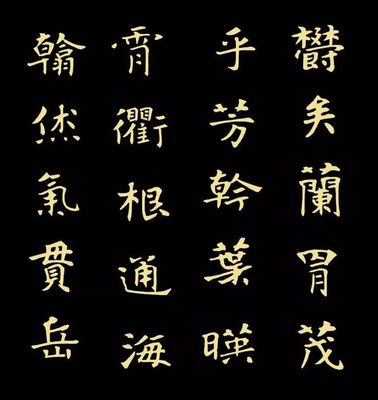 欝矣蘭胄茂
乎芳幹葉暎
霄衢根通海
翰氣貫岳